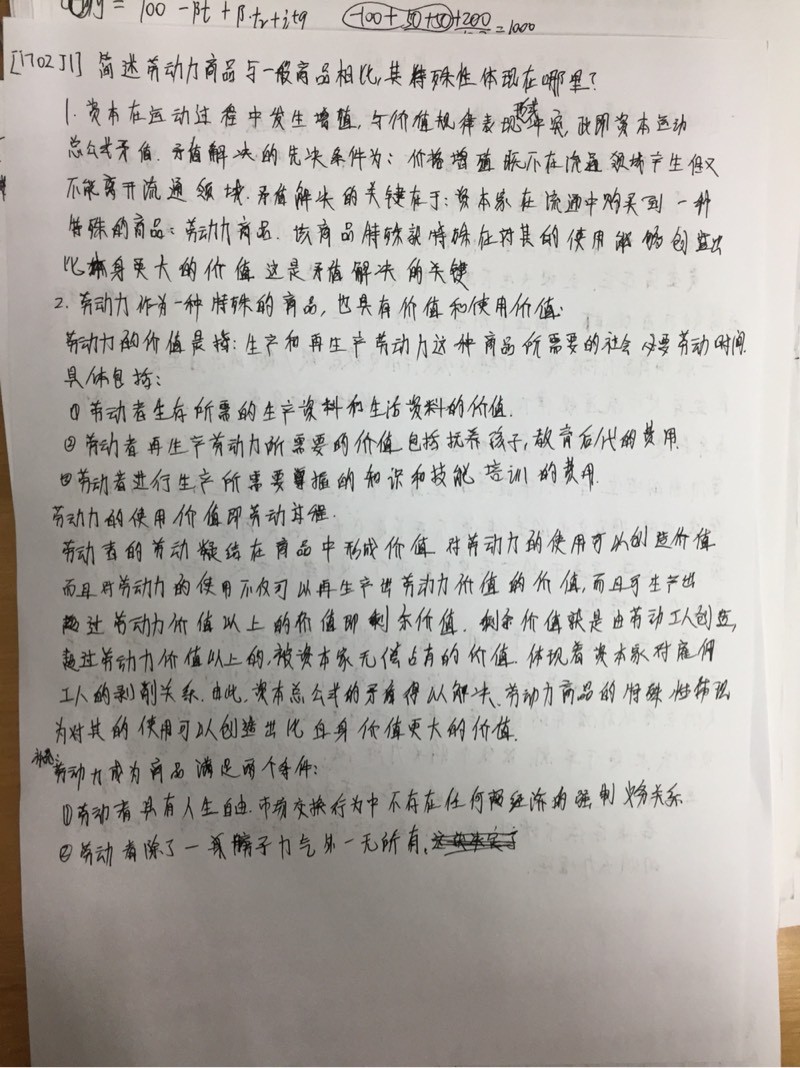 = 100 - βt + β·tr + itg -100 + 50 + 50 + 200 = 1000
[1702J1] 简述劳动力商品与一般商品相比,其特殊性体现在哪里?
1. 资本在运动过程中发生增值,与价值规律表现矛盾,此即资本运动
总公式矛盾.矛盾解决的先决条件为:价格增值既不在流通领域产生但又
不能离开流通领域.矛盾解决的关键在于:资本家在流通中购买到一种
特殊的商品:劳动力商品.该商品特殊就特殊在对其的使用能够创造出
比本身更大的价值.这是矛盾解决的关键
2. 劳动力作为一种特殊的商品,也具有价值和使用价值:
劳动力的价值是指:生产和再生产劳动力这种商品所需要的社会必要劳动时间.
具体包括:
① 劳动者生存所需的生产资料和生活资料的价值.
② 劳动者再生产劳动力所需要的价值包括抚养孩子,教育后代的费用.
③ 劳动者进行生产所需要掌握的知识和技能培训的费用.
劳动力的使用价值即劳动过程.
劳动者的劳动凝结在商品中形成价值.对劳动力的使用可以创造价值
而且对劳动力的使用不仅可以再生产出劳动力价值的价值,而且可生产出
超过劳动力价值以上的价值即剩余价值.剩余价值就是由劳动工人创造,
超过劳动力价值以上的,被资本家无偿占有的价值.体现着资本家对雇佣
工人的剥削关系.由此,资本总公式的矛盾得以解决.劳动力商品的特殊性体现
为对其的使用可以创造出比自身价值更大的价值.
补充:劳动力成为商品满足两个条件:
① 劳动者具有人生自由.市场交换行为中不存在任何超经济的强制义务关系
② 劳动者除了一身膀子力气外一无所有.